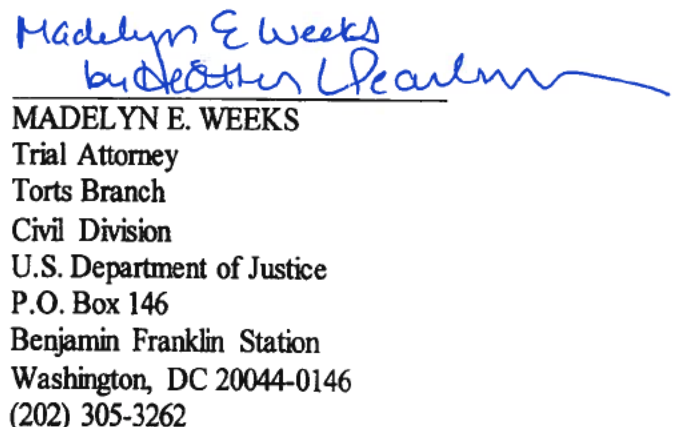 Madelyn E Weeks
by Heather L Pearlman
MADELYN E. WEEKS
Trial Attorney
Torts Branch
Civil Division
U.S. Department of Justice
P.O. Box 146
Benjamin Franklin Station
Washington, DC 20044-0146
(202) 305-3262